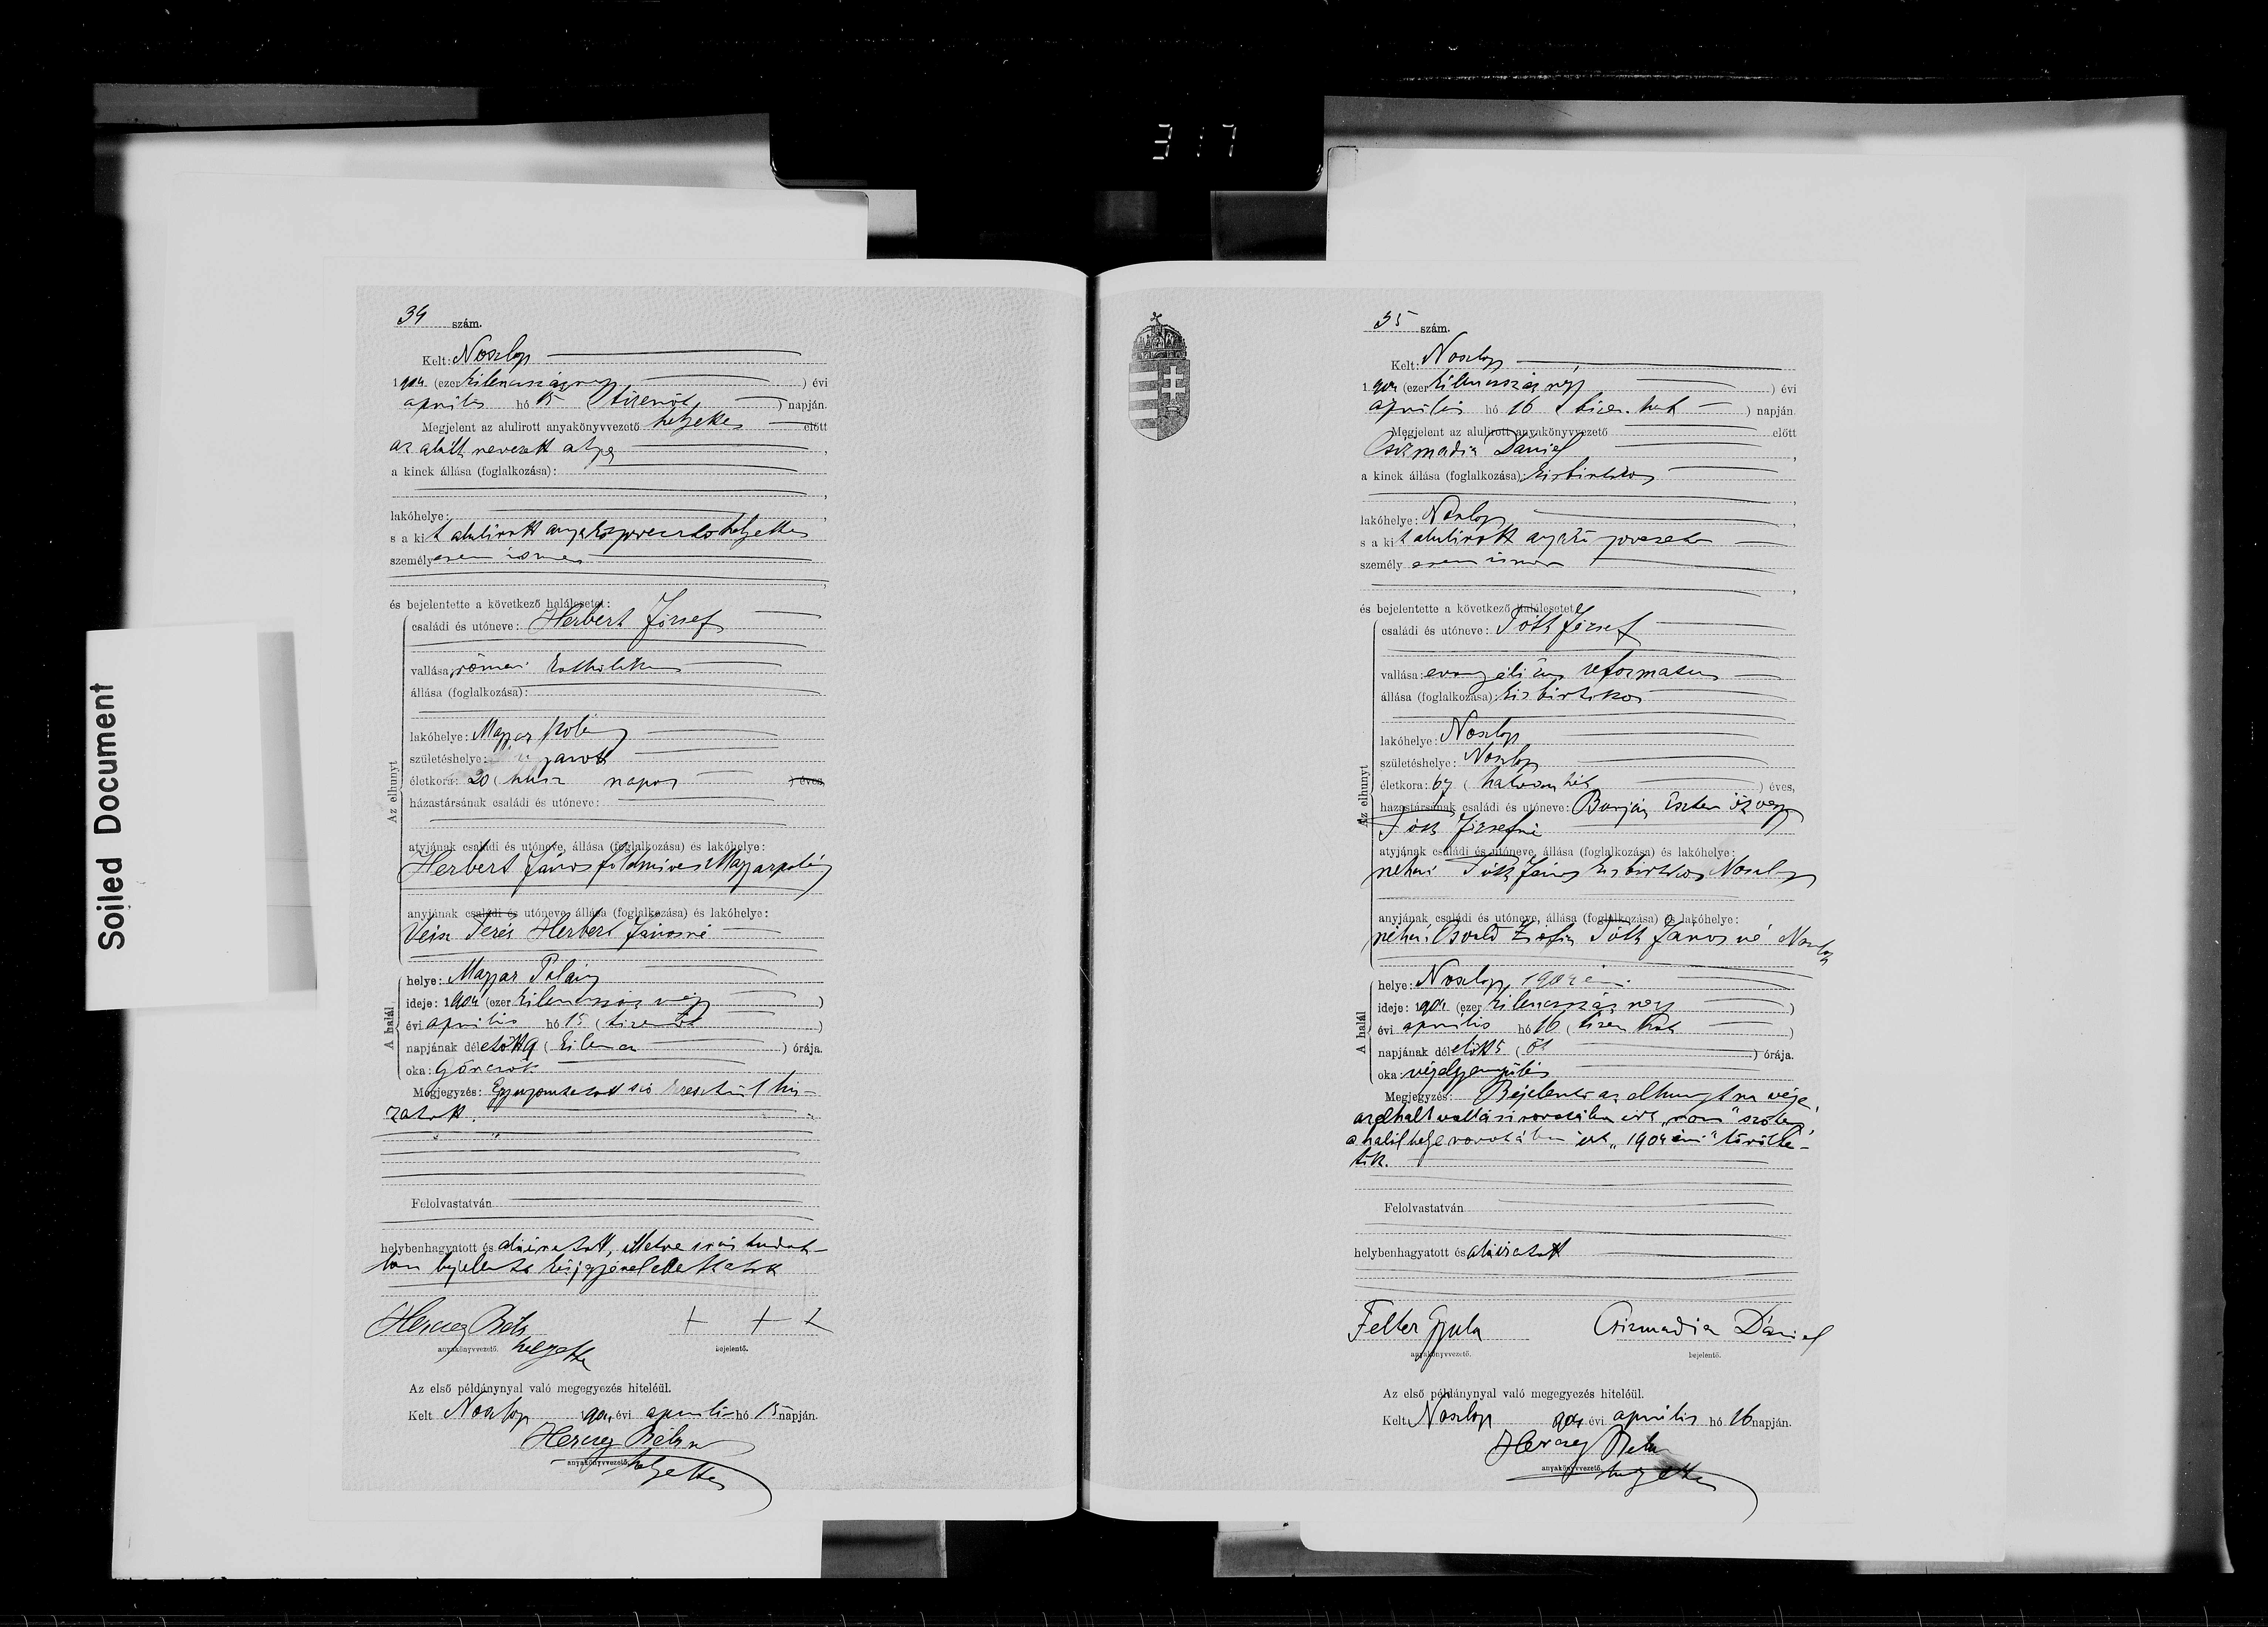 317
Soiled Document
34 szám.
Kelt: Noszlop
1904 (ezer kilenczszáznégy) évi
április hó 15 (tizenöt) napján.
Megjelent az alulirott anyakönyvvezető helyettes előtt
az alább nevezett atya,
a kinek állása (foglalkozása):
lakóhelye:
s a kit alulirott anyakönyvvezető helyettes
személyesen ismer
és bejelentette a következő halálesetet:
Az elhunyt
családi és utóneve: Herbert József
vallása: római katholikus
állása (foglalkozása):
lakóhelye: Magyar Polány
születéshelye: u gyanott
életkora: 20 (húsz napos) éves,
házastársának családi és utóneve:
atyjának családi és utóneve, állása (foglalkozása) és lakóhelye:
Herbert János földmives Magyarpolány
anyjának családi és utóneve, állása (foglalkozása) és lakóhelye:
Veisz Teréz Herbert Jánosné
A halál
helye: Magyar Polány
ideje: 1904 (ezer kilenczszáz négy)
évi április hó 15 (tizenöt)
napjának délelőtt 9 (kilencz) órája.
oka: görcsök
Megjegyzés: Egy nyomtatott szó keresztül hu-
zatott.
Felolvastatván
helybenhagyatott és aláiratott, illetve irás tudat-
lan bejelentő kézjegyével elláttatott
Herczeg Béla + + +
anyakönyvvezető. helyettes bejelentő.
Az első példánynyal való megegyezés hiteléül.
Kelt Noszlop 1904 évi április hó 15 napján.
Herczeg Béla
anyakönyvvezető. helyettes
35 szám.
Kelt: Noszlop
1904 (ezer kilenczszáz négy) évi
április hó 16 (tizen hat) napján.
Megjelent az alulirott anyakönyvvezető előtt
Csizmadia Dániel,
a kinek állása (foglalkozása): kisbirtokos
lakóhelye: Noszlop
s a kit alulirott anyakönyvvezető
személyesen ismer
és bejelentette a következő halálesetet:
Az elhunyt
családi és utóneve: Tóth József
vallása: evangélium reformatus
állása (foglalkozása): kisbirtokos
lakóhelye: Noszlop
születéshelye: Noszlop
életkora: 67 (hatvan hét) éves,
házastársának családi és utóneve: Eszter özvegy
Tóth Józsefné
atyjának családi és utóneve, állása (foglalkozása) és lakóhelye:
néhai Tóth János kisbirtokos Noszlop
anyjának családi és utóneve, állása (foglalkozása) és lakóhelye:
néhai Osvald Zsófia Tóth Jánosné Noszlop
A halál
helye: Noszlop, 1904 évi
ideje: 1904 (ezer kilenczszáz négy)
évi április hó 16 (tizen hat)
napjának délelőtt 5 (öt) órája.
oka: végelgyengülés
Megjegyzés: Bejelentő az elhunytnak veje,
az elhalt vallási rovatában irt szó és
a halál helye rovatában irt „1904 évi" töröltet-
tik.
Felolvastatván
helybenhagyatott és aláiratott
Feller Gyula Csizmadia Dániel
anyakönyvvezető. bejelentő.
Az első példánynyal való megegyezés hiteléül.
Kelt Noszlop 1904 évi április hó 16 napján.
Herczeg Béla
anyakönyvvezető. helyettes